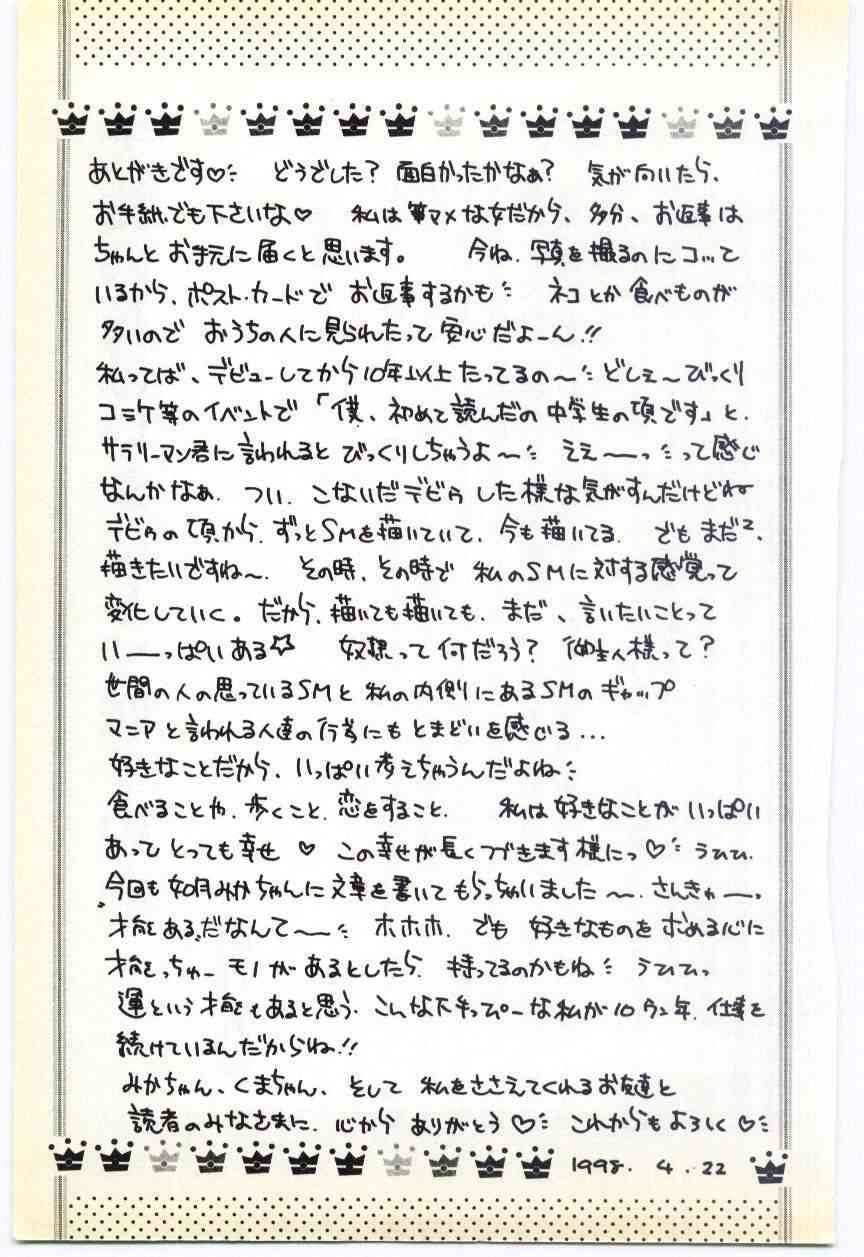 あとがきです♡ どうでした? 面白かったかなぁ? 気が向いたら、
お手紙でも下さいな♡ 私は筆マメな女だから、多分、お返事は
ちゃんとお手元に届くと思います。 今ね、写真を撮るのにコッて
いるから、ポスト・カードで お返事するかも ネコとか食べものが
多いので おうちの人に見られたって安心だよーん!!
私ってば、デビューしてから10年以上たってるの〜 どしぇ〜びっくり
コミケ等のイベントで「僕、初めて読んだの中学生の頃です」と、
サラリーマン君に言われると びっくりしちゃうよ〜 ええーっって感じ
なんかなぁ、つい、こないだデビゥした様な気がすんだけどね
デビゥの頃から、ずっとSMを描いていて、今も描いてる。 でもまだ2、
描きたいですね〜。 その時、その時で 私のSMに対する感覚って
変化していく。だから、描いても描いても、まだ、言いたいことって
いーっぱいある☆ 奴隷って何だろう? 御主人様って?
世間の人の思っているSMと 私の内側にあるSMのギャップ
マニアと言われる人達の行為にもとまどいを感じる...
好きなことだから、いっぱい考えちゃうんだよね
食べることや、歩くこと、恋をすること、 私は好きなことがいっぱい
あってとっても幸せ♡ この幸せが長くつづきます様にっ♡ うひひ、
今回も如月みかちゃんに文章を書いてもらっちゃいました〜、さんきゅーっ
"才能ある"だなんて〜 ホホホ、でも 好きなものを求める心に
才能っちゃーモノがあるとしたら、持ってるのかもね うひひっ
運という才能もあると思う、こんな下手っぴーな私が10ウン年、仕事を
続けているんだからね!!
みかちゃん、くまちゃん、そして 私をささえてくれるお友達と
読者のみなさまに、心から ありがとう♡ これからもよろしく♡
1998. 4. 22